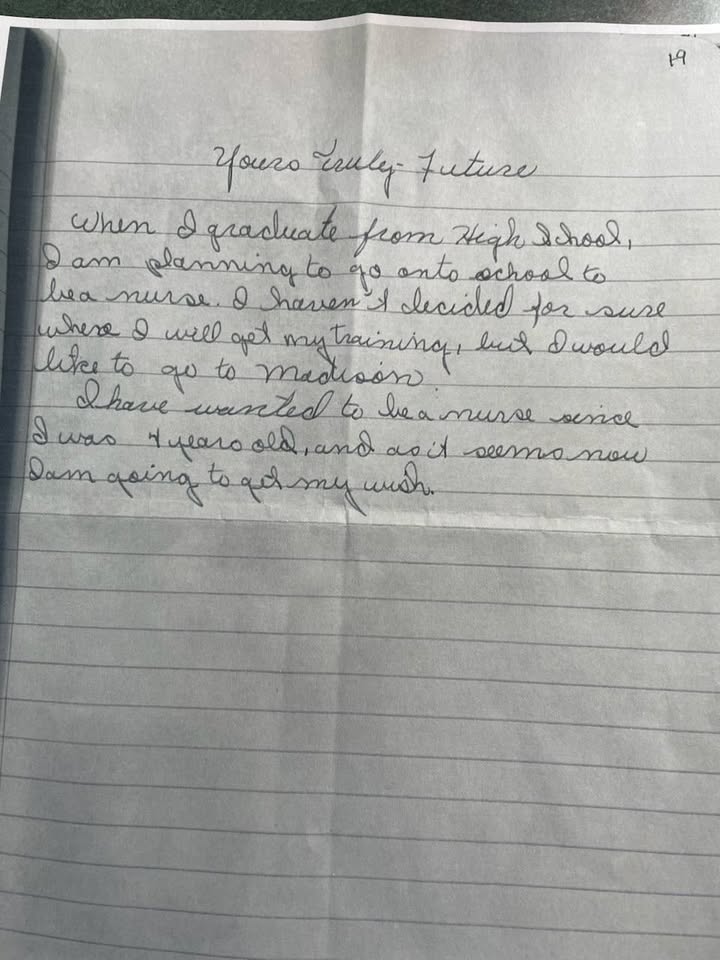 19
Yours Truly - Future
When I graduate from High School,
I am planning to go onto school to
be a nurse. I haven't decided for sure
where I will get my training, but I would
like to go to Madison.
I have wanted to be a nurse since
I was 4 years old, and as it seems now
I am going to get my wish.